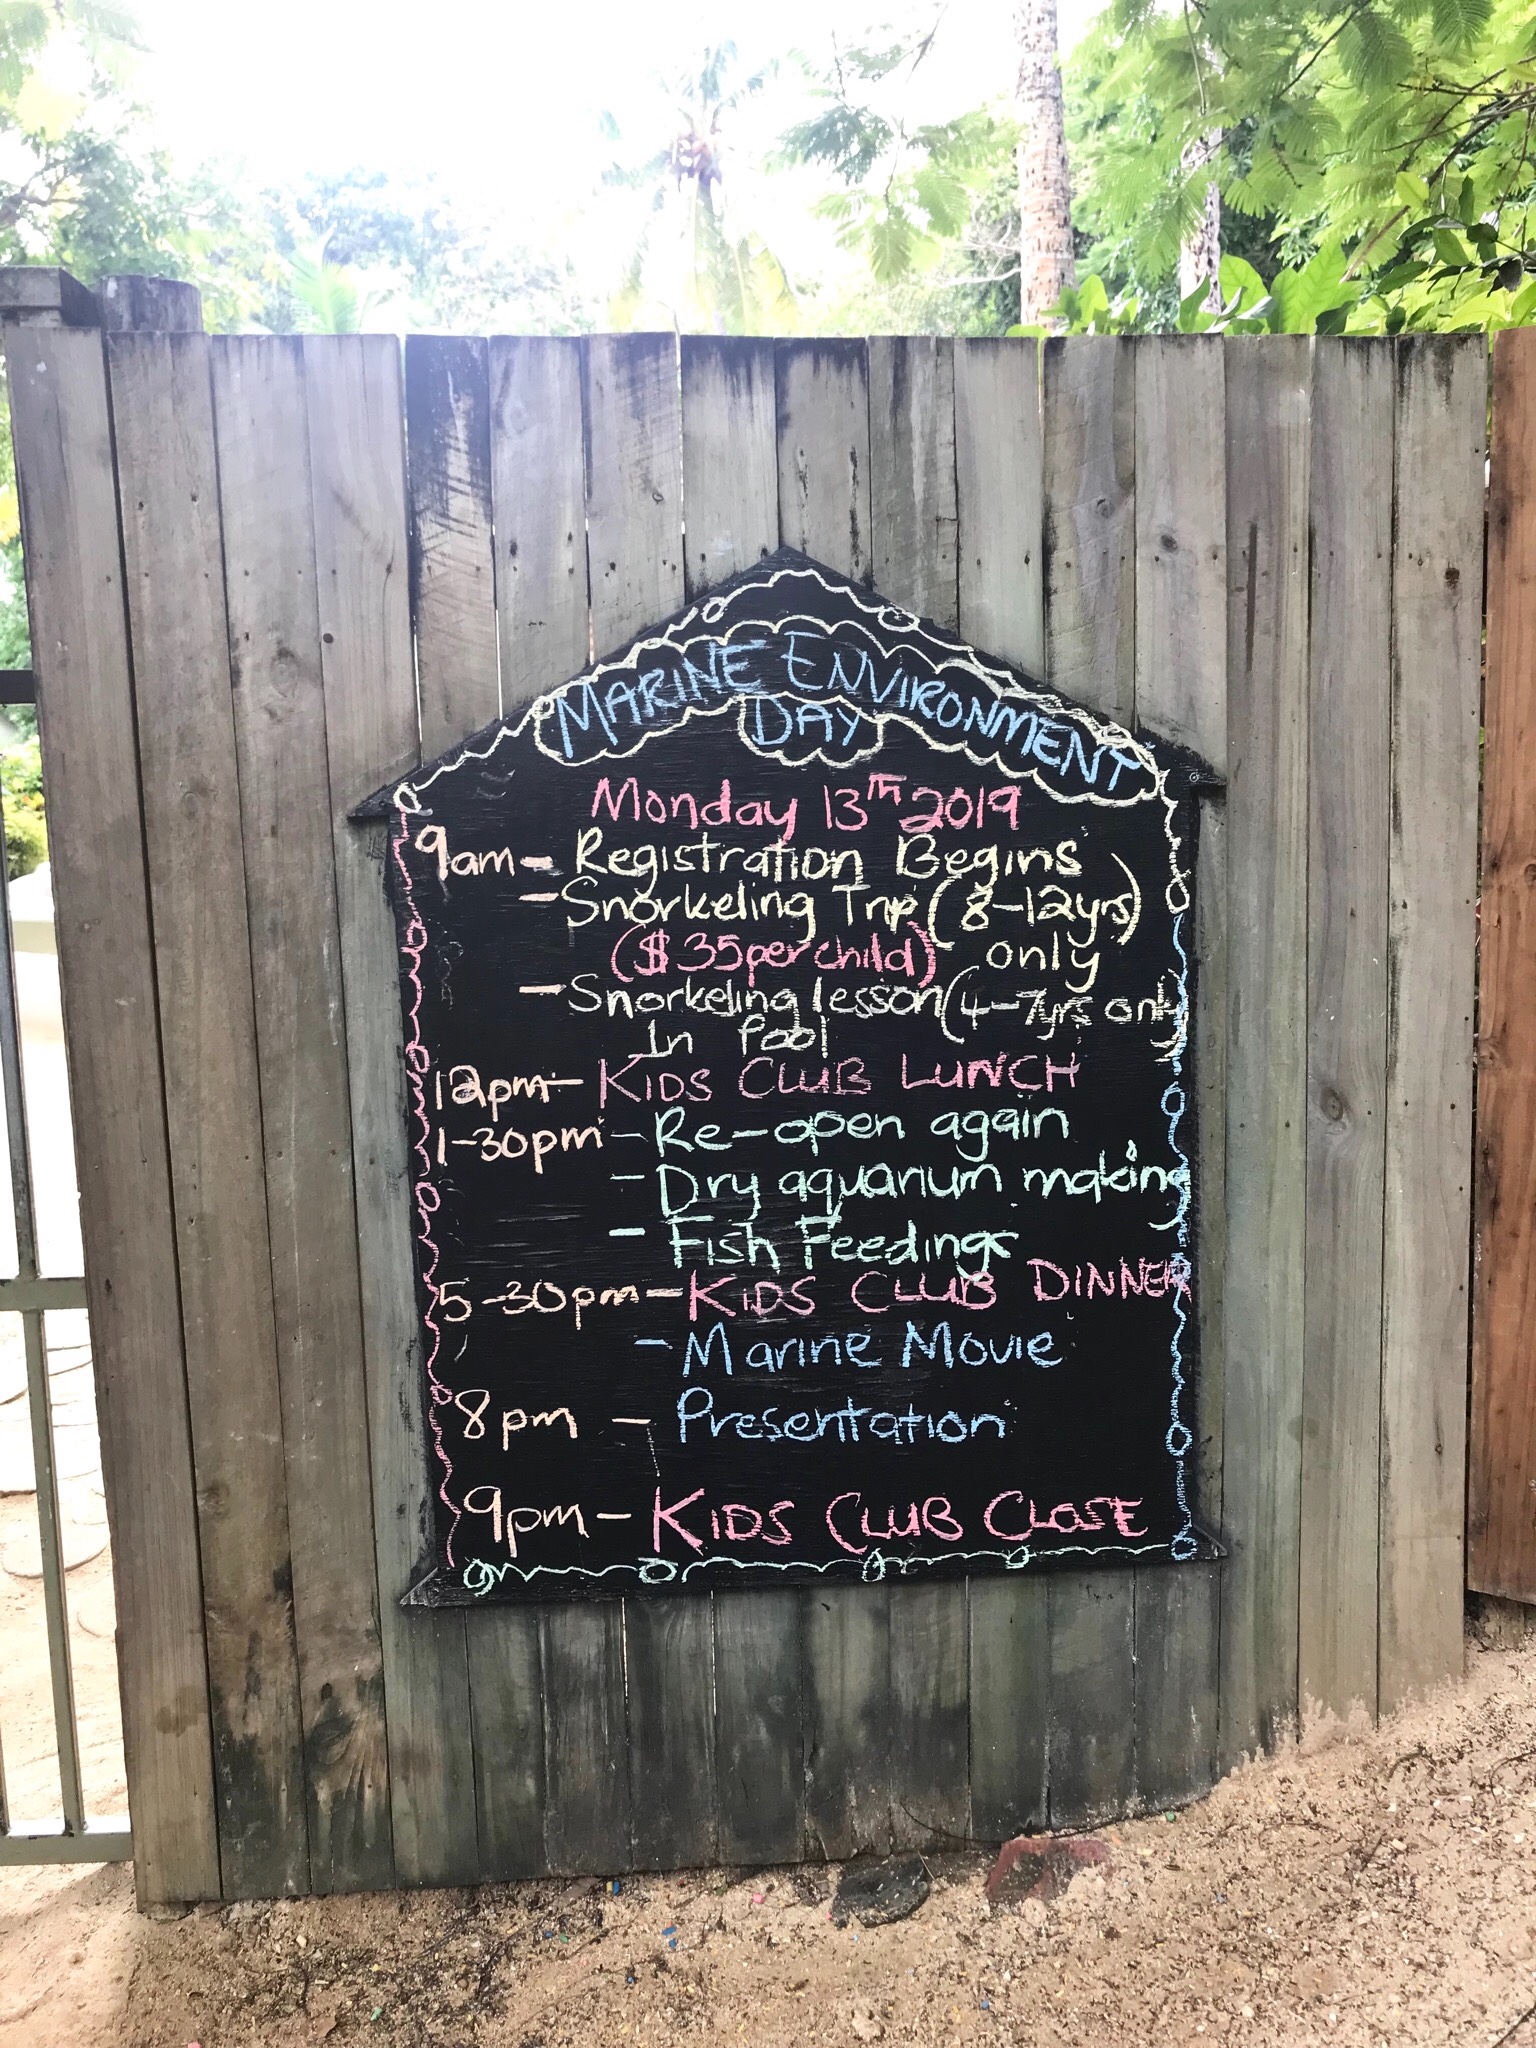 MARINE ENVIRONMENT
DAY
Monday 13TH 2019
9am - Registration Begins
- Snorkeling Trip (8-12yrs)
($35 per child) only
- Snorkeling lesson (4-7yrs only)
In Pool
12pm - KIDS CLUB LUNCH
1-30pm - Re-open again
- Dry aquarium making
- Fish Feedings
5-30pm - KIDS CLUB DINNER
- Marine Movie
8pm - Presentation
9pm - KIDS CLUB CLOSE